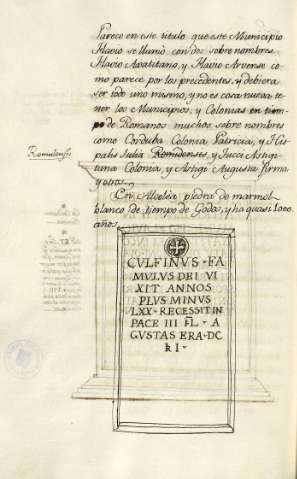 Parece en este titulo que este Municipio
Flavio se llamó con dos sobre nombres,
Flavio Axatitano, y Flavio Arvense co
mo parece por los precedentes, y debiera
ser todo uno mismo, y no es cosa nueva te
ner los Municipios, y Colonias en tiem
po de Romanos muchos sobre nombres
como Corduba Colonia Patricia, y His
palis Julia Romulensis, y Tucci Astigi
tana Colonia, y Astigi Augusta firma
y otros.
Romulensis
En Alcolea piedra de marmol
blanco de tiempo de Godos, y ha quasi 1000
años.
CULFINUS · FA
MULUS DEI VI
XIT ANNOS
PLUS MINUS
LXX · RECESSIT IN
PACE III KL · A
GUSTAS ERA · DC
RI ·